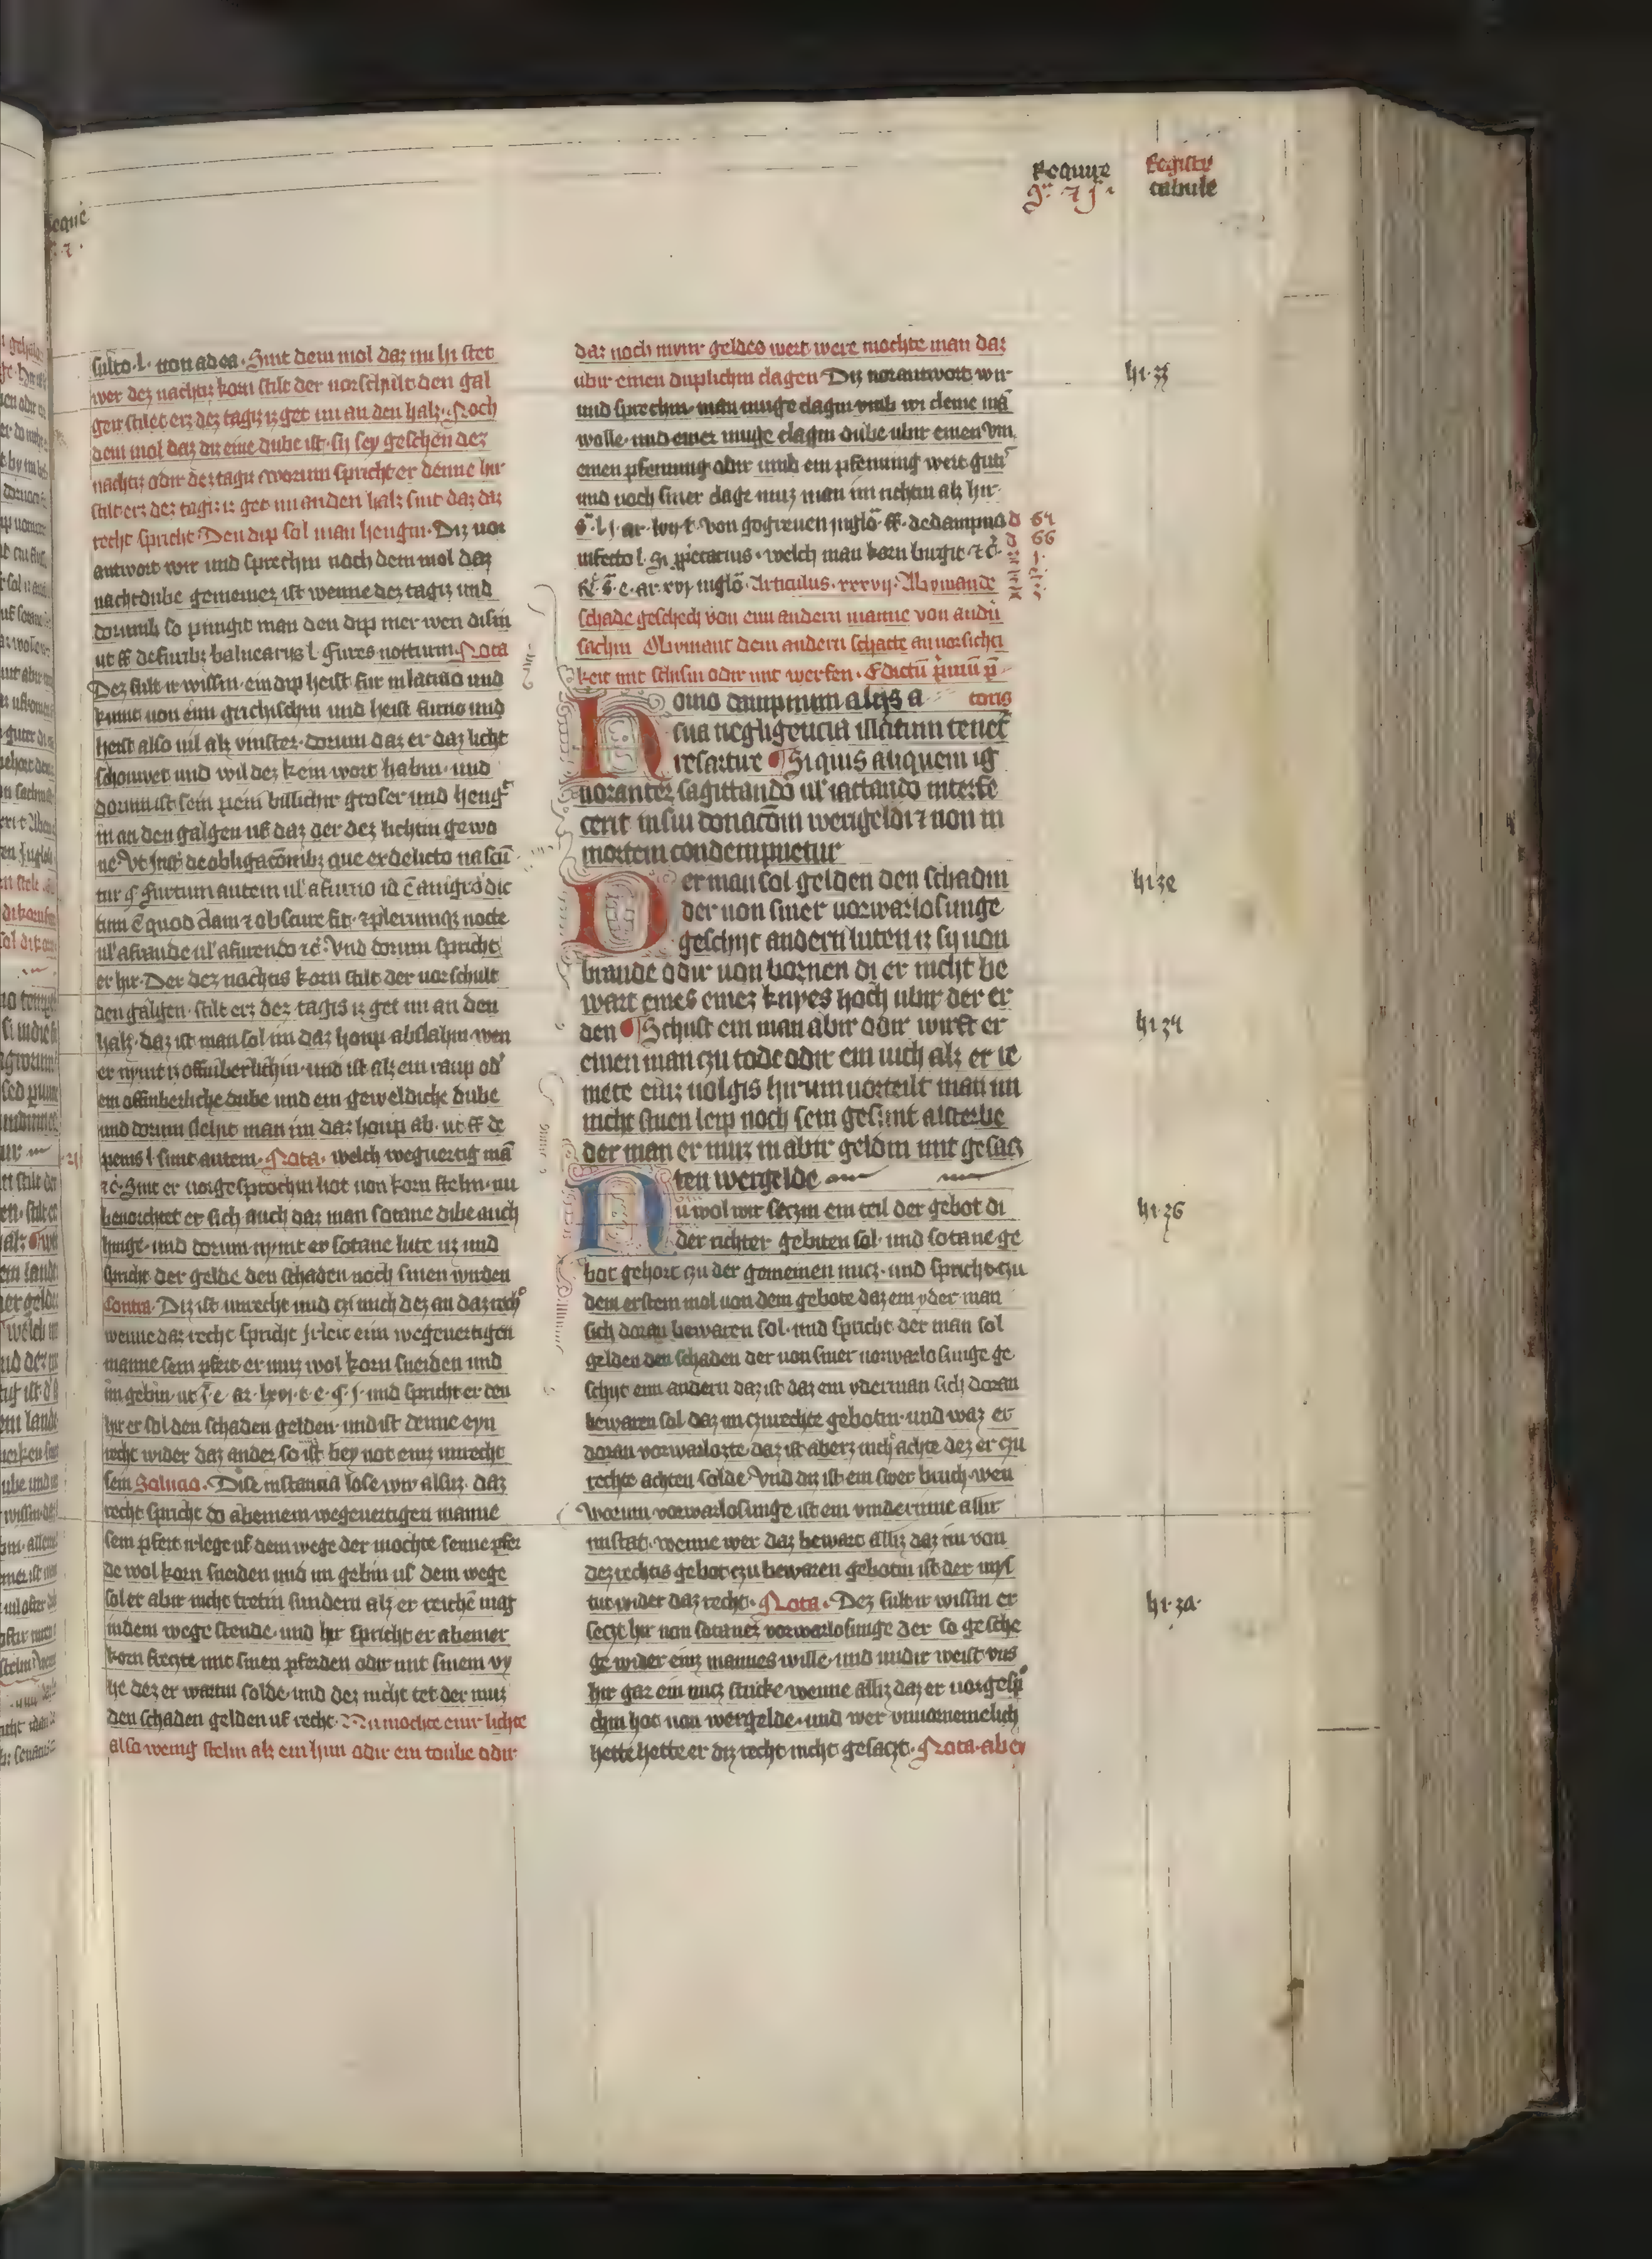 Require
Registr
tabule
sulto . l . non ad ea . Sint dem mol daz nu hi stet
wer dez nachtz korn stilt der vorschult den gal
gen stilet erz dez tagiz iz get im an den halz . Noch
dem mol daz diz eine dube ist . sy sey geschen dez
nachtz odir dez tagiz worum spricht er denne hir
stilt erz dez tagiz iz get im an den halz sint daz daz
recht spricht Den dip sol man hengin . Diz vor
antwort wir und sprechin noch dem mol daz
nachtdube gemeinez ist wenne dez tagiz und
dorumb so pinigit man den dip mer wen disin
ut ff de furib; balnearys l . fures notturni . Nota
Dez sult ir wissin . ein dip heist fur in latino und
kumt von eim grichischin und heist furno und
heist also vil alz vinster . dorum daz er daz licht
schouwet und wil dez kein wort habin . und
dorum ist sein pein billichir groser und heng
in an den galgen uf daz der dez lichtin gewo
ne Vt Inst de obligacoib; que ex delicto nascu
tur § Furtum autem ul' a furuo id e a nigro dic
tum e quod clam et obscure fit . et plerumq; nocte
ul' a fraude ul' a furendo etc . Vnd dorum spricht
er hir . Der dez nachtis korn stilt der vorschult
den galgen . stilt erz dez tagis iz get im an den
halz . daz ist man sol im daz houp abslahin wen
er nymt iz offinberlichin . und ist alz ein raup od'
ein offinberliche dube und ein geweldiche dube
und dorum slehit man im daz houp ab . ut ff de
penis l . sunt autem . Nota . welch weguertig ma
etc . Sint er vorgesprochin hot von korn steln . nu
bevorchtet er sich auch daz man sotane dibe auch
hinge . und dorum nymt er sotane lute uz und
spricht der gelde den schaden noch sinen wirden
Contra . Diz ist unrecht und czi mich dez an daz rech
wenne daz recht spricht Irleit eim wegeuertigen
manne sein pfert . er muz wol korn sneiden und
im gebin . ut s . e . ar . lxvi . t . e . § . j . und spricht er den
hir er sol den schaden gelden . und ist denne eyn
recht wider daz ander so ist bey not einz unrecht
sein Solucio . Dise instancia lose wir alsuz . daz
recht spricht do ab einem wegeuertigen manne
sein pfert irlege uf dem wege der mochte seime pfer
de wol korn sneiden und im gebin uf dem wege
sol er abir nicht tretin sundern alz er reichen mag
in dem wege stende . und hir spricht er ab einer
korn frezte mit sinen pferden odir mit sinem vy
he dez er warnn solde . und dez nicht tet der muz
den schaden gelden uf recht . Nu mochte einr lichte
also wenig steln alz ein hun odir ein toube odir
daz noch mynr geldes wert were mochte man daz
ubir einen duplichin clagen Diz vorantwort wir
und sprechin . man muge clagin umb wi cleine ma
wolle . und einer muge clagin dube ubir einen vm
einen pfenning odir umb ein pfenning wert gut
und noch siner clage muz man im richtin alz hir
s . l . j . ar . lviij . t . von gogreuen in glo . ff . de dampno
infecto l . Si pictarius . welch man korn burgit etc .
R . s . e . ar . xvj in glo . Articulus . xxxvij . Ab ymande
64
66
schade geschech von eim andern manne von andirn
sachin Ob ymant dem andern schatte an vorsichti
keit mit schisin odir mit werfen . Edictu primu p
toris
Homo dampnum aliis a
sua negligencia illatum tenet
resartur Siquis aliquem ig
noranter sagittando ul' iactando interfe
cerit in sui donacom weigeldi et non in
mortem condempnetur
Der man sol gelden den schadin
der von siner vorwarlosunge
geschit andern luten iz sy von
brande odir von bornen di er nicht be
wart eines einez knyes hoch ubir der er
den Schust ein man abir odir wirft er
einen man czu tode odir ein vich alz er re
mete einz volgis hirum vorteilt man im
nicht sinen leip noch sein gesunt al sterbe
der man er muz in abir geldin mit gesacz
ten wergelde
Nu wol wir seczin ein teil der gebot di
der richter gebiten sol . und sotane ge
bot gehort czu der gemeinen nucz . und spricht czu
dem erstem mol von dem gebote daz ein yder man
sich doran bewaren sol . und spricht der man sol
gelden den schaden der von siner vorwarlosunge ge
schit eim andern daz ist daz ein yderman sich doran
bewaren sol daz im czurechte gebotin . und waz er
doran vorwarlozte . daz ist aberz nicht achte dez er czu
rechte achten solde Vnd diz ist ein swer bruch . wen
worum vorwarlosunge ist ein vinderinne allir
mistat . wenne wer daz bewart alliz daz im von
dez rechtis gebot czu bewaren gebotin ist der mys
tut wider daz recht . Nota . Dez sult ir wissin er
seczt hir von sotaner vorwarlosunge der so gesche
ge wider einz mannes wille . und undir weist uns
hir gar ein nucz stucke wenne alliz daz er vorgesp
chin hot von wergelde . und wer vnuornemelich
hette hette er diz recht nicht gesaczt . Nota . aber